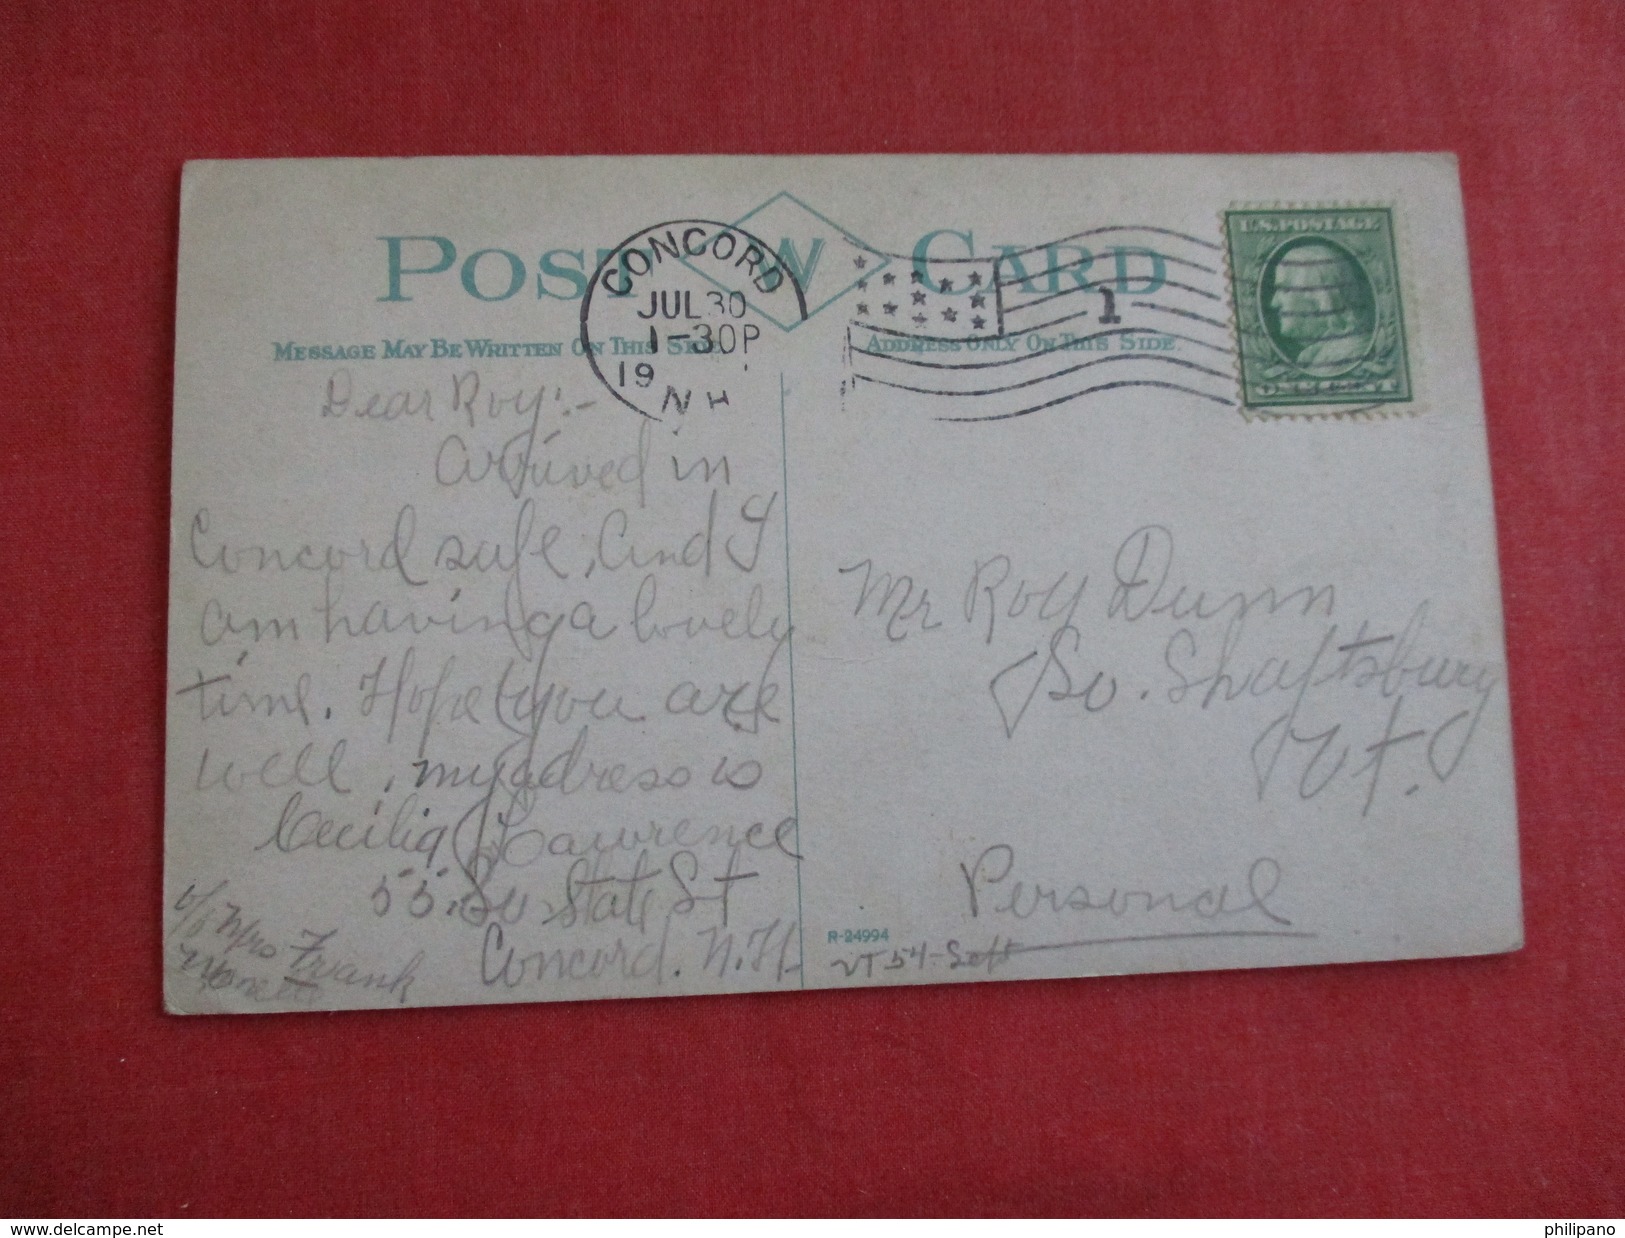 POST W CARD
CONCORD
JUL 30
1-30P
19
N.H.
1
U.S. POSTAGE
ONE CENT
MESSAGE MAY BE WRITTEN ON THIS SIDE
ADDRESS ONLY ON THIS SIDE.
Dear Roy:-
Arrived in
Concord safe, And I
am having a lovely
time. Hope you are
well, my adress is
Cecilia Lawrence
55 So. State St
Concord. N.H.
c/o Mrs Frank
Mr Roy Dunn
So. Shaftsbury
Vt.
Personal
R-24994
VT 54-Sept
delcampe.net
philipano